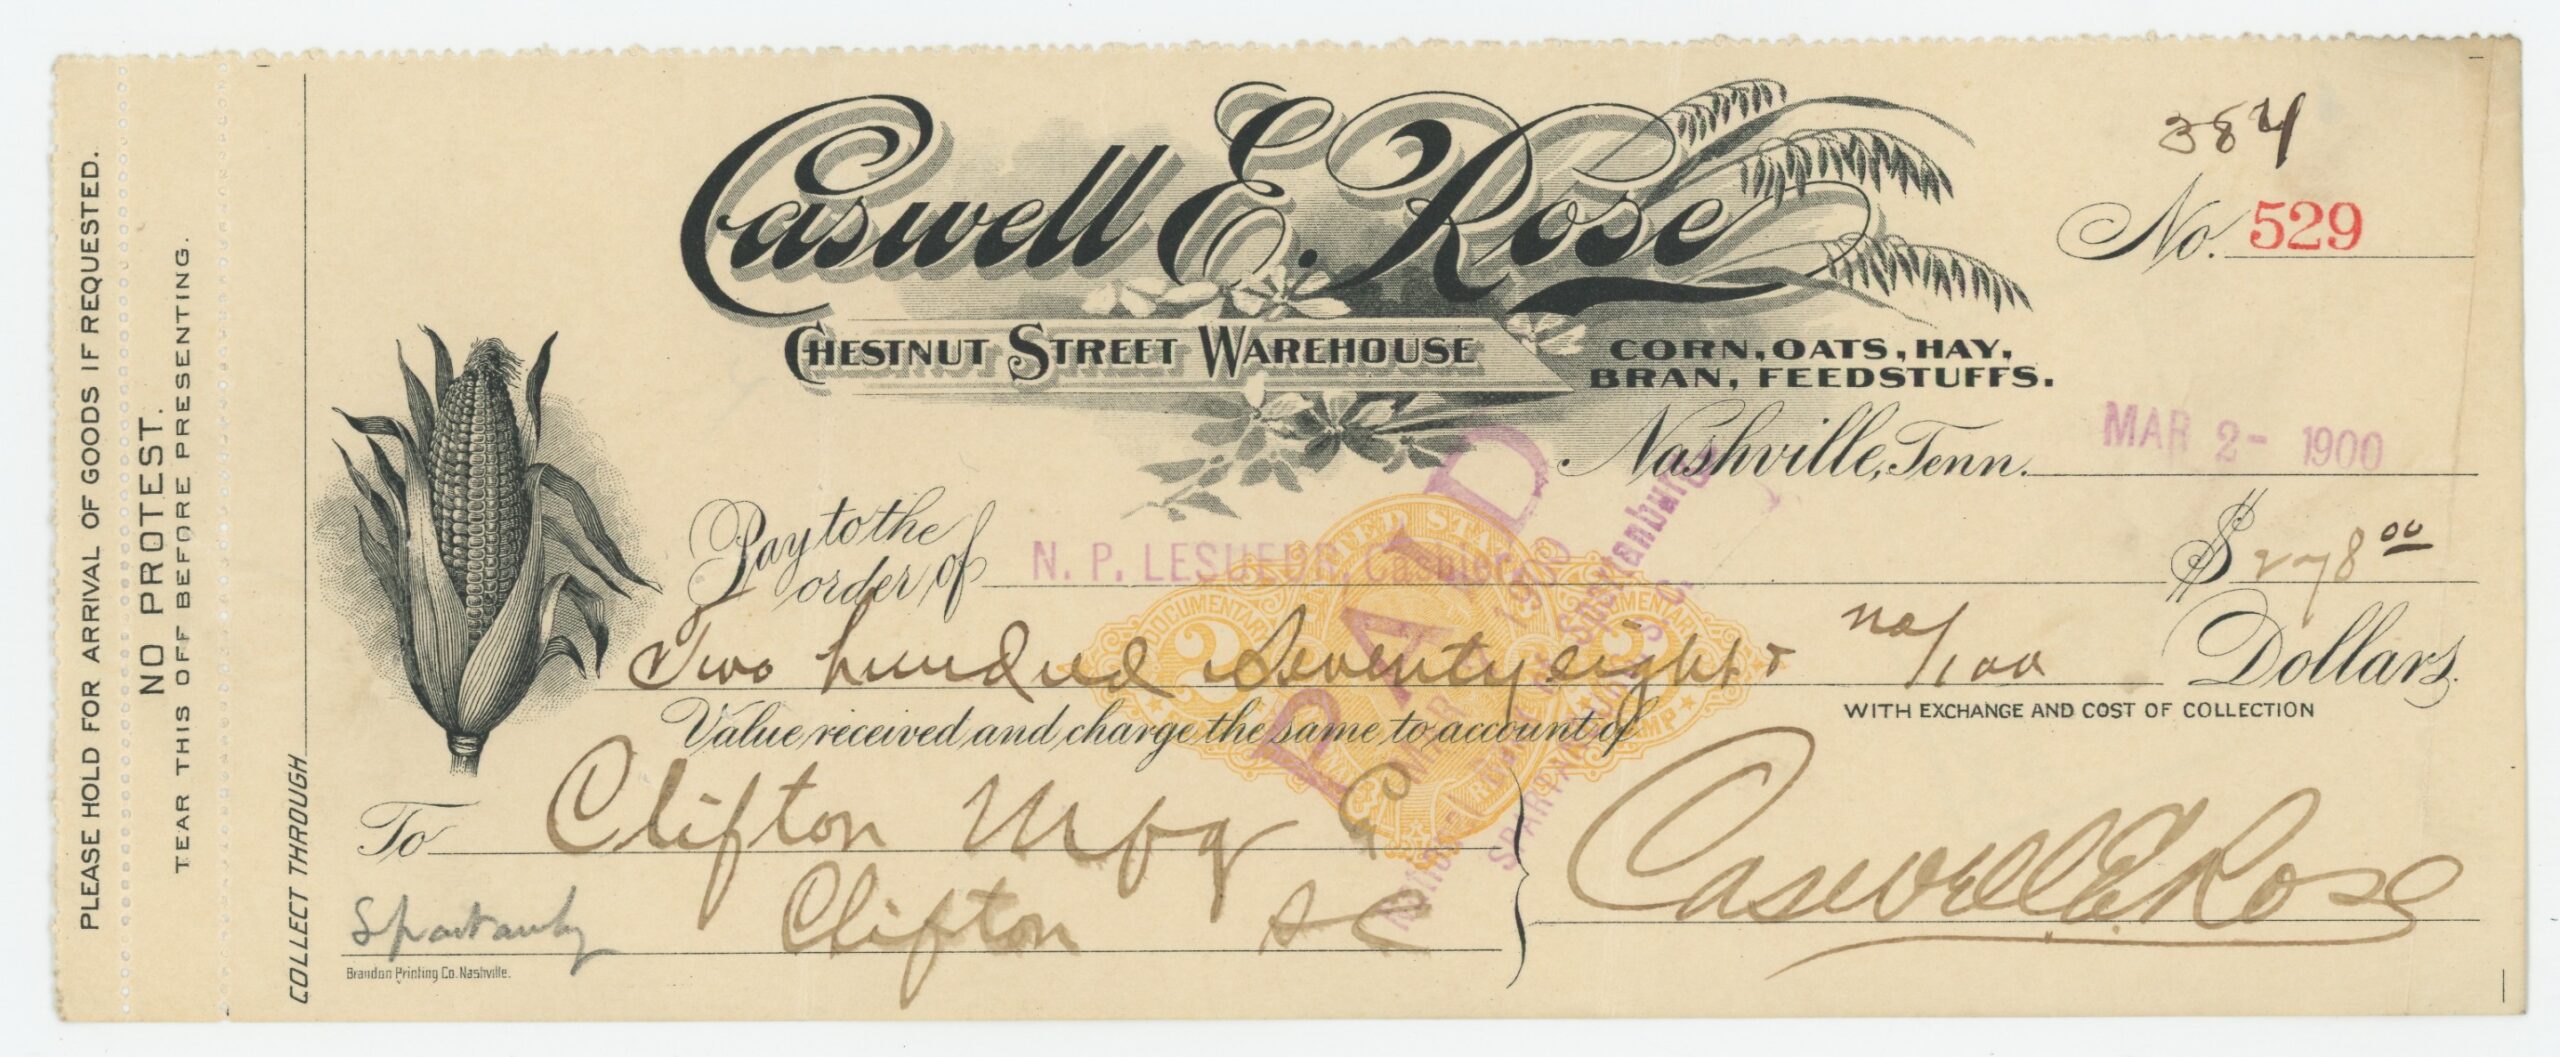 PLEASE HOLD FOR ARRIVAL OF GOODS IF REQUESTED.
NO PROTEST.
TEAR THIS OFF BEFORE PRESENTING.
COLLECT THROUGH
Caswell E. Rose
384
No. 529
CHESTNUT STREET WAREHOUSE
CORN, OATS, HAY,
BRAN, FEEDSTUFFS.
Nashville, Tenn. MAR 2 - 1900
Pay to the
order of N. P. LESUEUR, Cashier $ 278 00
UNITED STATES
DOCUMENTARY
2
2
DOCUMENTARY
STAMP
PAID
MAR 1900
National
Spartanburg
SPARTANBURG, S. C.
Two hundred Seventy eight & no/100 Dollars
WITH EXCHANGE AND COST OF COLLECTION
Value received and charge the same to account of
To Clifton Mfg Co
Clifton SC
Caswell E. Rose
Spartanbg
Brandon Printing Co. Nashville.